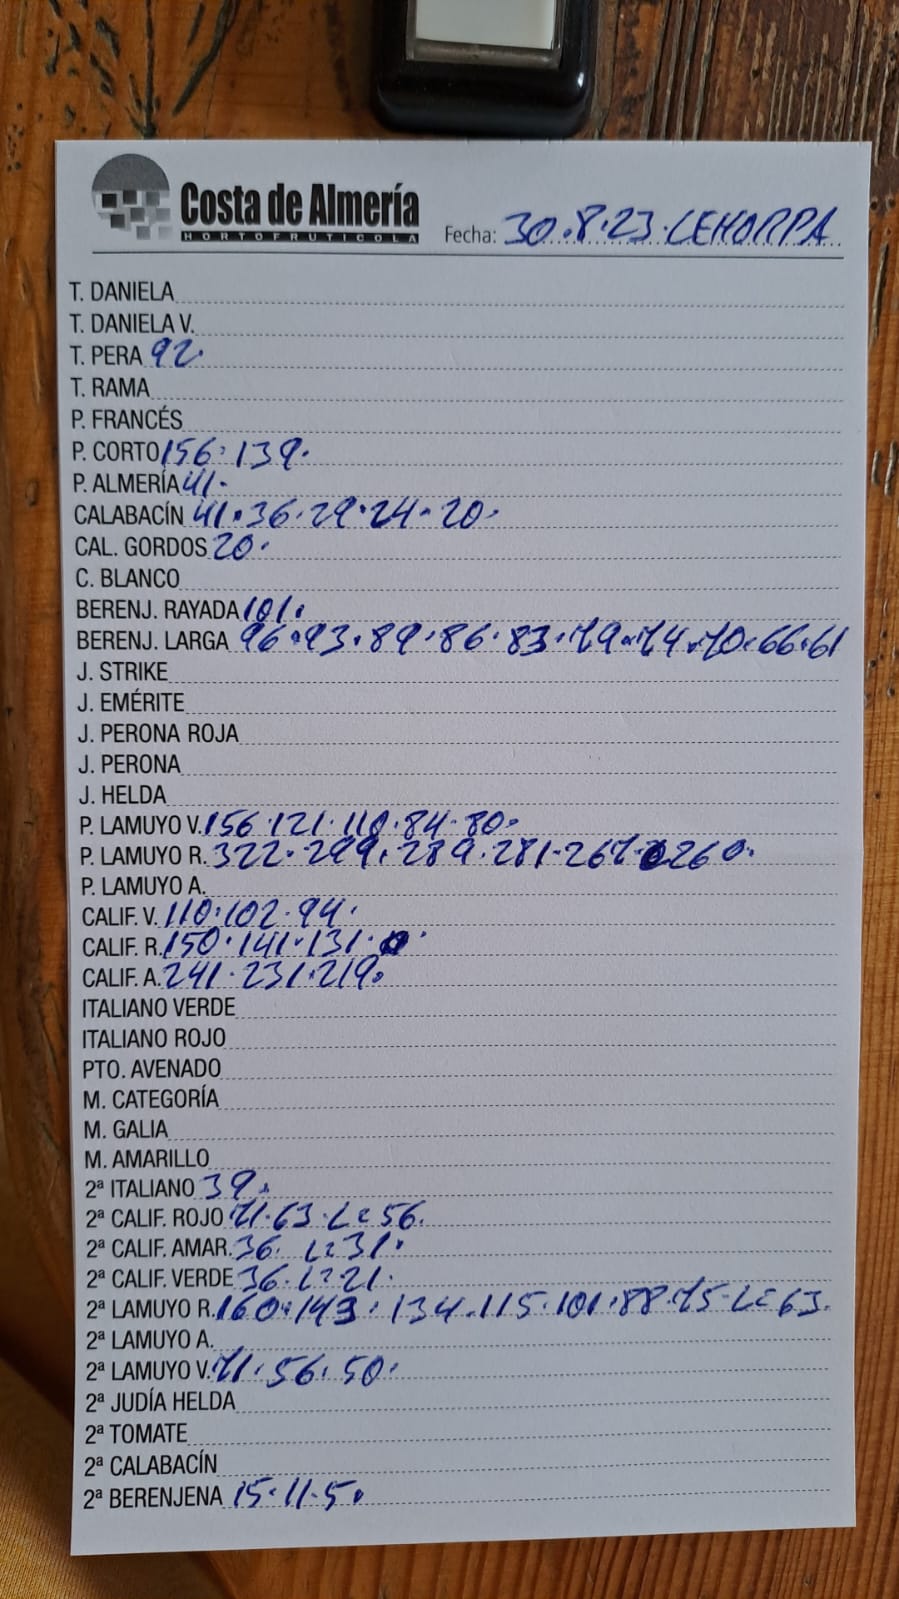 Costa de Almería
HORTOFRUTICOLA
Fecha: 30.8.23. LEHORPA
T. DANIELA
T. DANIELA V.
T. PERA 92.
T. RAMA
P. FRANCÉS
P. CORTO 156. 139.
P. ALMERÍA 41.
CALABACÍN 41. 36. 29. 24. 20.
CAL. GORDOS 20.
C. BLANCO
BERENJ. RAYADA 101.
BERENJ. LARGA 96. 93. 89. 86. 83. 79. 74. 70. 66. 61
J. STRIKE
J. EMÉRITE
J. PERONA ROJA
J. PERONA
J. HELDA
P. LAMUYO V. 156. 121. 110. 84. 80.
P. LAMUYO R. 322. 299. 289. 281. 267. 260.
P. LAMUYO A.
CALIF. V. 110. 102. 94.
CALIF. R. 150. 141. 131.
CALIF. A. 241. 231. 219.
ITALIANO VERDE
ITALIANO ROJO
PTO. AVENADO
M. CATEGORÍA
M. GALIA
M. AMARILLO
2ª ITALIANO 39.
2ª CALIF. ROJO 71. 63. L= 56.
2ª CALIF. AMAR. 36. L= 31.
2ª CALIF. VERDE 36. L= 21.
2ª LAMUYO R. 160. 143. 134. 115. 101. 88. 75. L= 63.
2ª LAMUYO A.
2ª LAMUYO V. 71. 56. 50.
2ª JUDÍA HELDA
2ª TOMATE
2ª CALABACÍN
2ª BERENJENA 15. 11. 5.